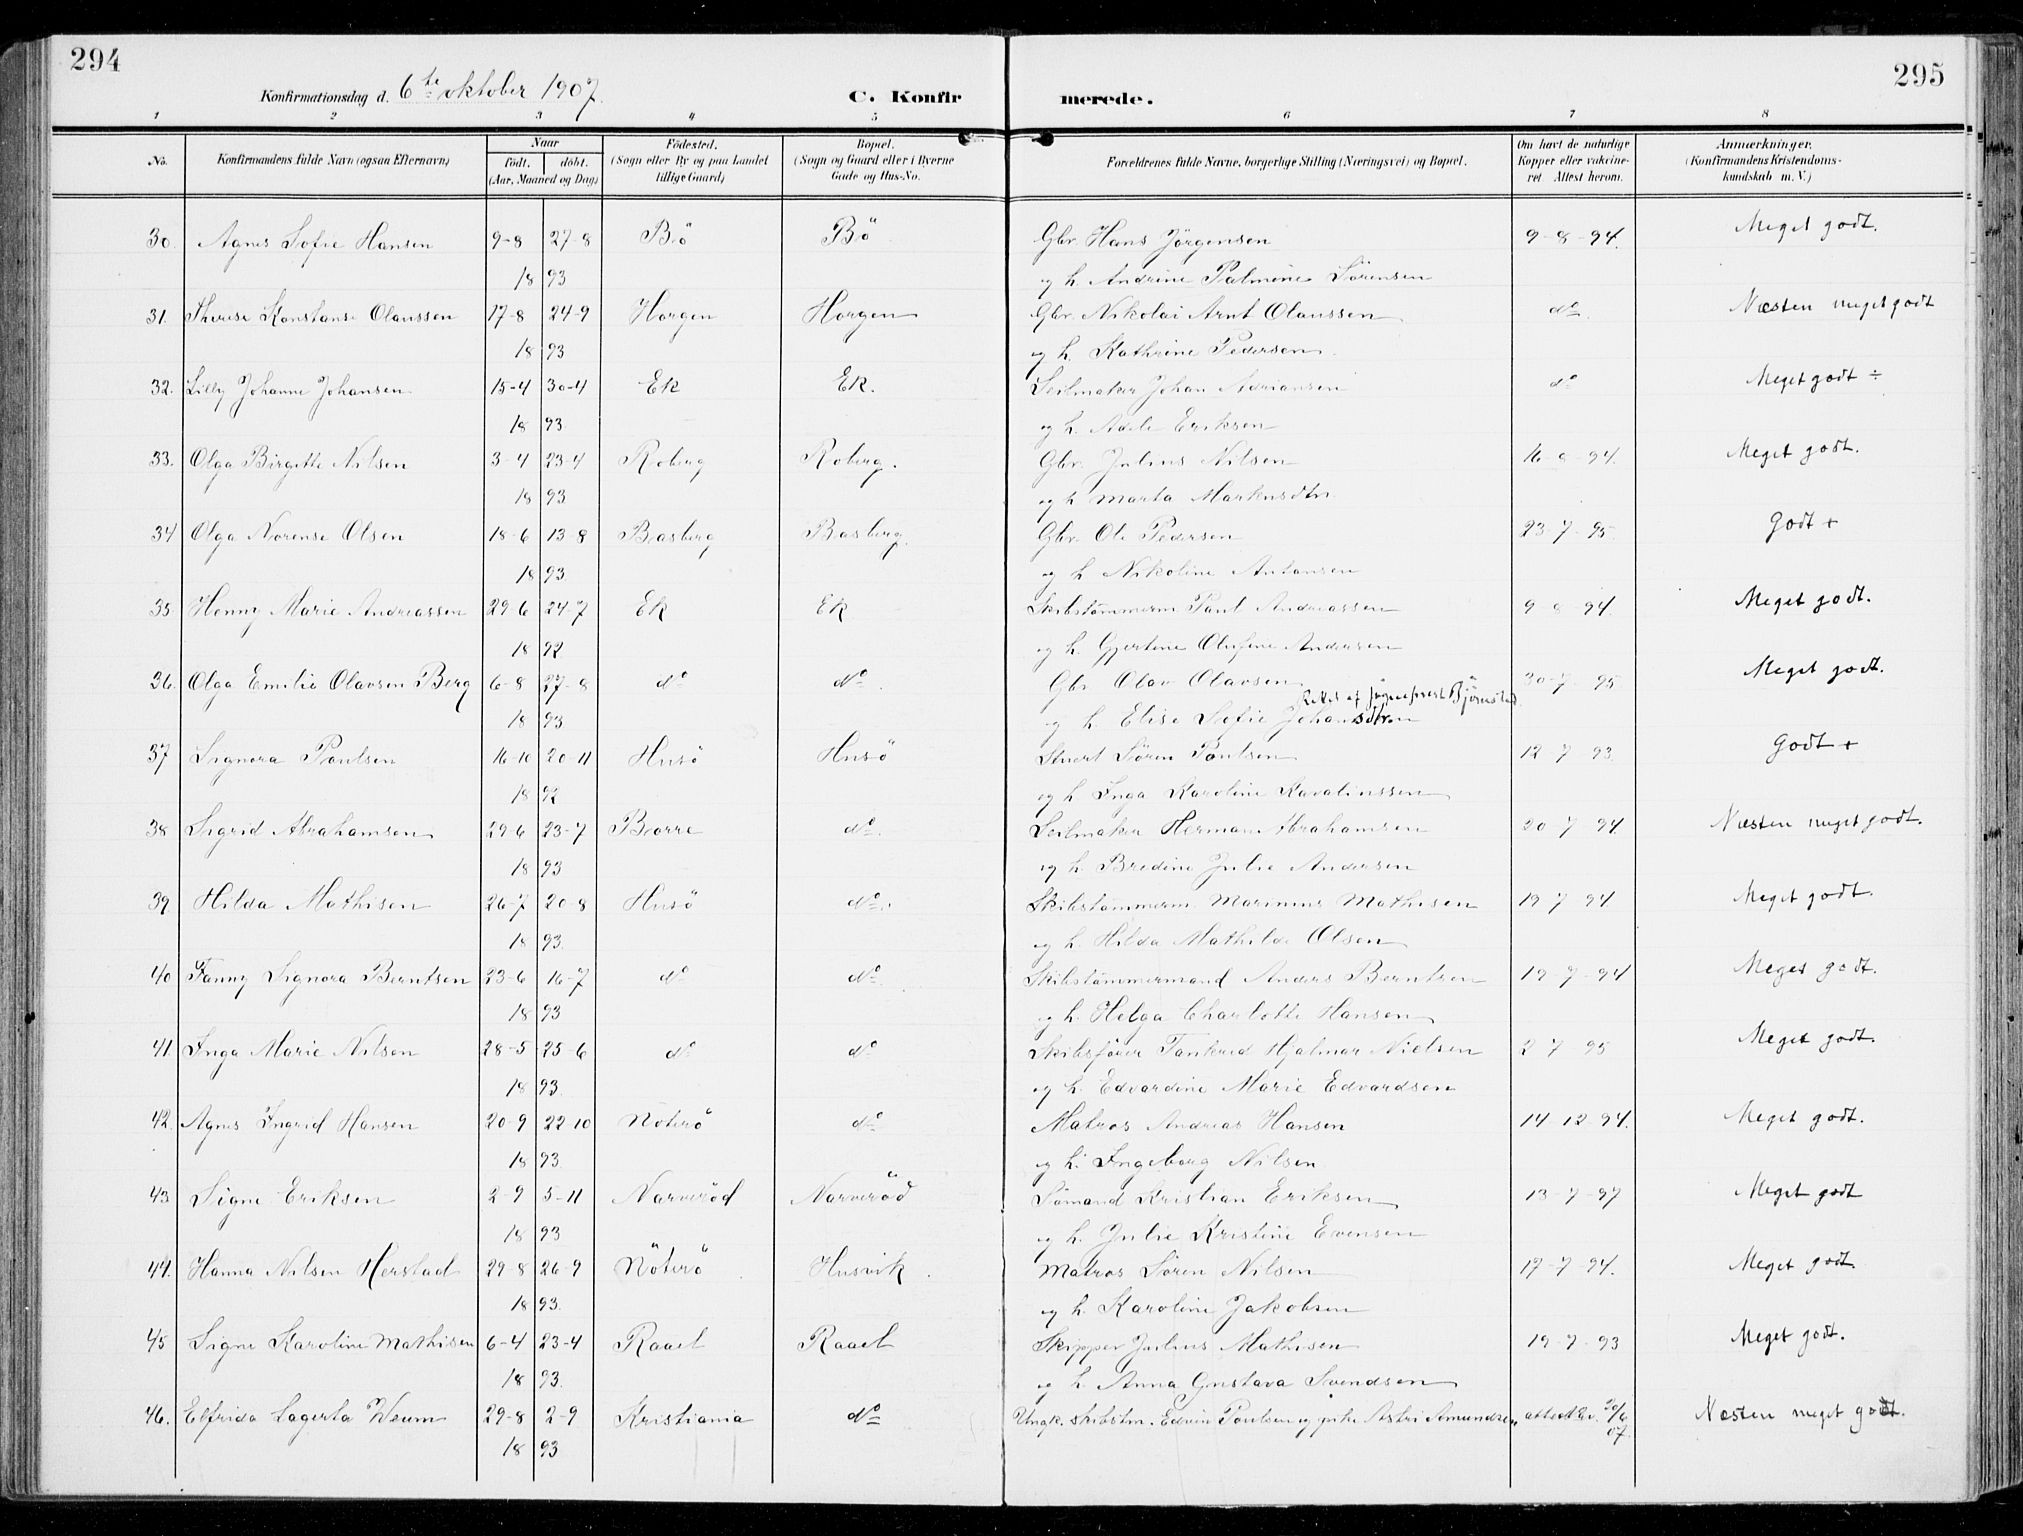 294
Konfirmationsdag d. 6te oktober 1907.
C. Konfirmerede.
295
1 2 3 4 5 6 7 8
No. Konfirmandens fulde Navn (ogsaa Efternavn) Naar født. døbt. (Aar, Maaned og Dag) Fødested. (Sogn eller By og paa Landet tillige Gaard) Bopæl. (Sogn og Gaard eller i Byerne Gade og Hus-No. Forældrenes fulde Navne, borgerlige Stilling (Næringsvei) og Bopæl. Om havt de naturlige Kopper eller vaksineret Attest herom. Anmærkninger. (Konfirmandens Kristendomskundskab m. V.)
30. Agnes Sofie Hansen 9-8 27-8 Bö Bö Gbr. Hans Jörgensen 9-8-94. Meget godt.
18 93 og h. Andrine Palmine Sörensen
31. Therese Konstanse Olaussen 17-8 24-9 Horgen Horgen Gbr. Nikolai Arnt Olaussen do Næsten meget godt
18 93 og h. Kathrine Pedersen.
32. Lilly Johanne Johansen 15-4 30-4 Ek Ek. Seilmaker Johan Adriansen do Meget godt ÷
18 93 og h. Adele Eriksen
33. Olga Birgitte Nilsen 3-4 23-4 Roberg Roberg. Gbr. Julius Nilsen 16-8-94. Meget godt.
18 93 og h Marta Markusdtr.
34 Olga Norense Olsen 18-6 13-8 Basberg Basberg. Gbr. Ole Pedersen 23-7-95. Godt +
18 93 og h Nikoline Antonsen
35 Henny Marie Andreassen 29-6 24-7 Ek Ek Skibstömmerm Paul Andreassen 9-8-94. Meget godt.
18 92 og h. Gjertine Olufine Andersen
36. Olga Emilie Olavsen Berg 6-8 27-8 do do. Gbr Olav Olavsen 30-7-95 Meget godt.
Rettet af Sognepræst Björnstad
18 93 og h. Elise Sofie Johansdtr
37 Signora Poulsen 16-10 20-11 Husö Husö Stuert Sören Poulsen 12-7-93. Godt +
18 92 og h Inga Karoline Kavalinssen
38 Sigrid Abrahamsen 29-6 23-7 Borre do. Seilmaker Herman Abrahamsen 20-7-94 Næsten meget godt.
18 93 og h. Bredine Julie Andersen
39. Hilda Mathisen 26-7 20-8 Husö do. Skibstömmerm Marinius Mathisen 19-7-94 Meget godt.
18 93. og h. Hilda Mathilde Olsen
40 Fanny Signora Berntsen 23-6 16-7 do do. Skibstömmermand Anders Berntsen 19-7-94 Meget godt.
18 93 og h. Helga Charlotte Hansen
41. Inga Marie Nilsen 28-5 25-6 do do Skibsfører Tankred Hjalmar Nielsen 2-7-95 Meget godt.
18 93. og h. Edvardine Marie Edvardsen
42. Agnes Ingrid Hansen 20-9 22-10 Nöterö do Matros Andreas Hansen 14-12-94. Meget godt.
18 93. og h. Ingeborg Nilsen
43 Signe Eriksen 2-9 5-11 Narveröd Narveröd Sömand Kristian Eriksen 13-7-97 Meget godt
18 93 og h. Julie Kristine Evensen
44. Hanna Nilsen Herstad 29-8 26-9 Nöterö Husvik. Matros Sören Nilsen 17-7-94. Meget godt.
18 93. og h. Karoline Jakobsen
45 Signe Karoline Mathisen 6-4 23-4 Raael Raael Skipper Julius Mathisen 19-7-93 Meget godt.
18 93. og h. Anna Gustava Svendsen
46. Elfrida Lagerta Weum 29-8 2-9 Kristiania do Ungk. skibstm. Edvin Poulsen og pike Astri Amundsen 20/6 07. Næsten meget godt.
18 93